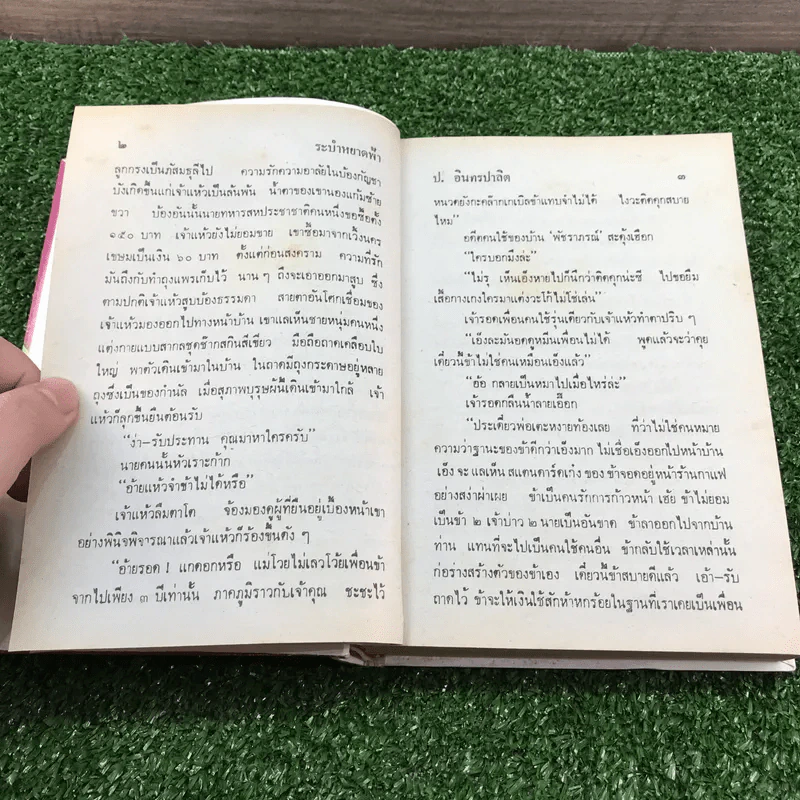 ๒ ระบำหยาดฟ้า
ลูกกรงเป็นภัสมธุลีไป ความรักความอาลัยในบ้องกัญชา
บังเกิดขึ้นแก่เจ้าแห้วเป็นล้นพ้น น้ำตาของเขานองแก้มซ้าย
ขวา บ้องอันนั้นนายทหารสหประชาชาติคนหนึ่งขอซื้อตั้ง
๑๕๐ บาท เจ้าแห้วยังไม่ยอมขาย เขาซื้อมาจากเวิ้งนคร
เขษมเป็นเงิน ๖๐ บาท ตั้งแต่ก่อนสงคราม ความที่รัก
มันถึงกับทำถุงแพรเก็บไว้ นาน ๆ ถึงจะเอาออกมาสูบ ซึ่ง
ตามปกติเจ้าแห้วสูบบ้องธรรมดา สายตาอันโศกเชื่อมของ
เจ้าแห้วมองออกไปทางหน้าบ้าน เขาแลเห็นชายหนุ่มคนหนึ่ง
แต่งกายแบบสากลชุดช๊ากสกินสีเขียว มือถือถาดเคลือบใบ
ใหญ่ พาตัวเดินเข้ามาในบ้าน ในถาดมีถุงกระดาษอยู่หลาย
ถุงซึ่งเป็นของกำนัล เมื่อสุภาพบุรุษผู้นี้เดินเข้ามาใกล้ เจ้า
แห้วก็ลุกขึ้นยืนต้อนรับ
“ง่า–รับประทาน คุณมาหาใครครับ”
นายคนนั้นหัวเราะก้าก
“อ้ายแห้วจำข้าไม่ได้หรือ”
เจ้าแห้วลืมตาโต จ้องมองดูผู้ที่ยืนอยู่เบื้องหน้าเขา
อย่างพินิจพิจารณาแล้วเจ้าแห้วก็ร้องขึ้นดัง ๆ
“อ้ายรอด ! แกดอกหรือ แม่โวยไม่เลวโว้ยเพื่อนข้า
จากไปเพียง ๓ ปีเท่านั้น ภาคภูมิราวกับเจ้าคุณ ชะชะไว้
ป. อินทรปาลิต ๓
หนวดยังกะคล๊ากเกเบิลข้าแทบจำไม่ได้ ไงวะติดคุกสบาย
ไหม”
อดีตคนใช้ของบ้าน ‘พัชราภรณ์’ สะดุ้งเฮือก
“ใครบอกมึงล่ะ”
“ไม่รุ เห็นเอ็งหายไปก็นึกว่าติดคุกน่ะซี ไปขอยืม
เสื้อกางเกงใครมาแต่งวะโก้ไม่ใช่เล่น”
เจ้ารอดเพื่อนคนใช้รุ่นเดียวกับเจ้าแห้วทำตาปริบ ๆ
“เอ็งละมันอดดูหมิ่นเพื่อนไม่ได้ พูดแล้วจะว่าคุย
เดี๋ยวนี้ข้าไม่ใช่คนเหมือนเอ็งแล้ว”
“ฮ้อ กลายเป็นหมาไปเมื่อไหร่ล่ะ”
เจ้ารอดกลืนน้ำลายเอื๊อก
“ประเดี๋ยวพ่อเตะหงายท้องเลย ที่ว่าไม่ใช่คนหมาย
ความว่าฐานะของข้าดีกว่าเอ็งมาก ไม่เชื่อเอ็งออกไปหน้าบ้าน
เอ็ง จะ แลเห็น สแตนดาร์ดเก๋ง ของ ข้าจอดอยู่หน้าร้านกาแฟ
อย่างสง่าผ่าเผย ข้าเป็นคนรักการก้าวหน้า เฮ้ย ข้าไม่ยอม
เป็นข้า ๒ เจ้าบ่าว ๒ นายเป็นอันขาด ข้าลาออกไปจากบ้าน
ท่าน แทนที่จะไปเป็นคนใช้คนอื่น ข้ากลับใช้เวลาเหล่านั้น
ก่อร่างสร้างตัวของข้าเอง เดี๋ยวนี้ข้าสบายดีแล้ว เอ้า–รับ
ถาดไว้ ข้าจะให้เงินใช้สักห้าหกร้อยในฐานที่เราเคยเป็นเพื่อน